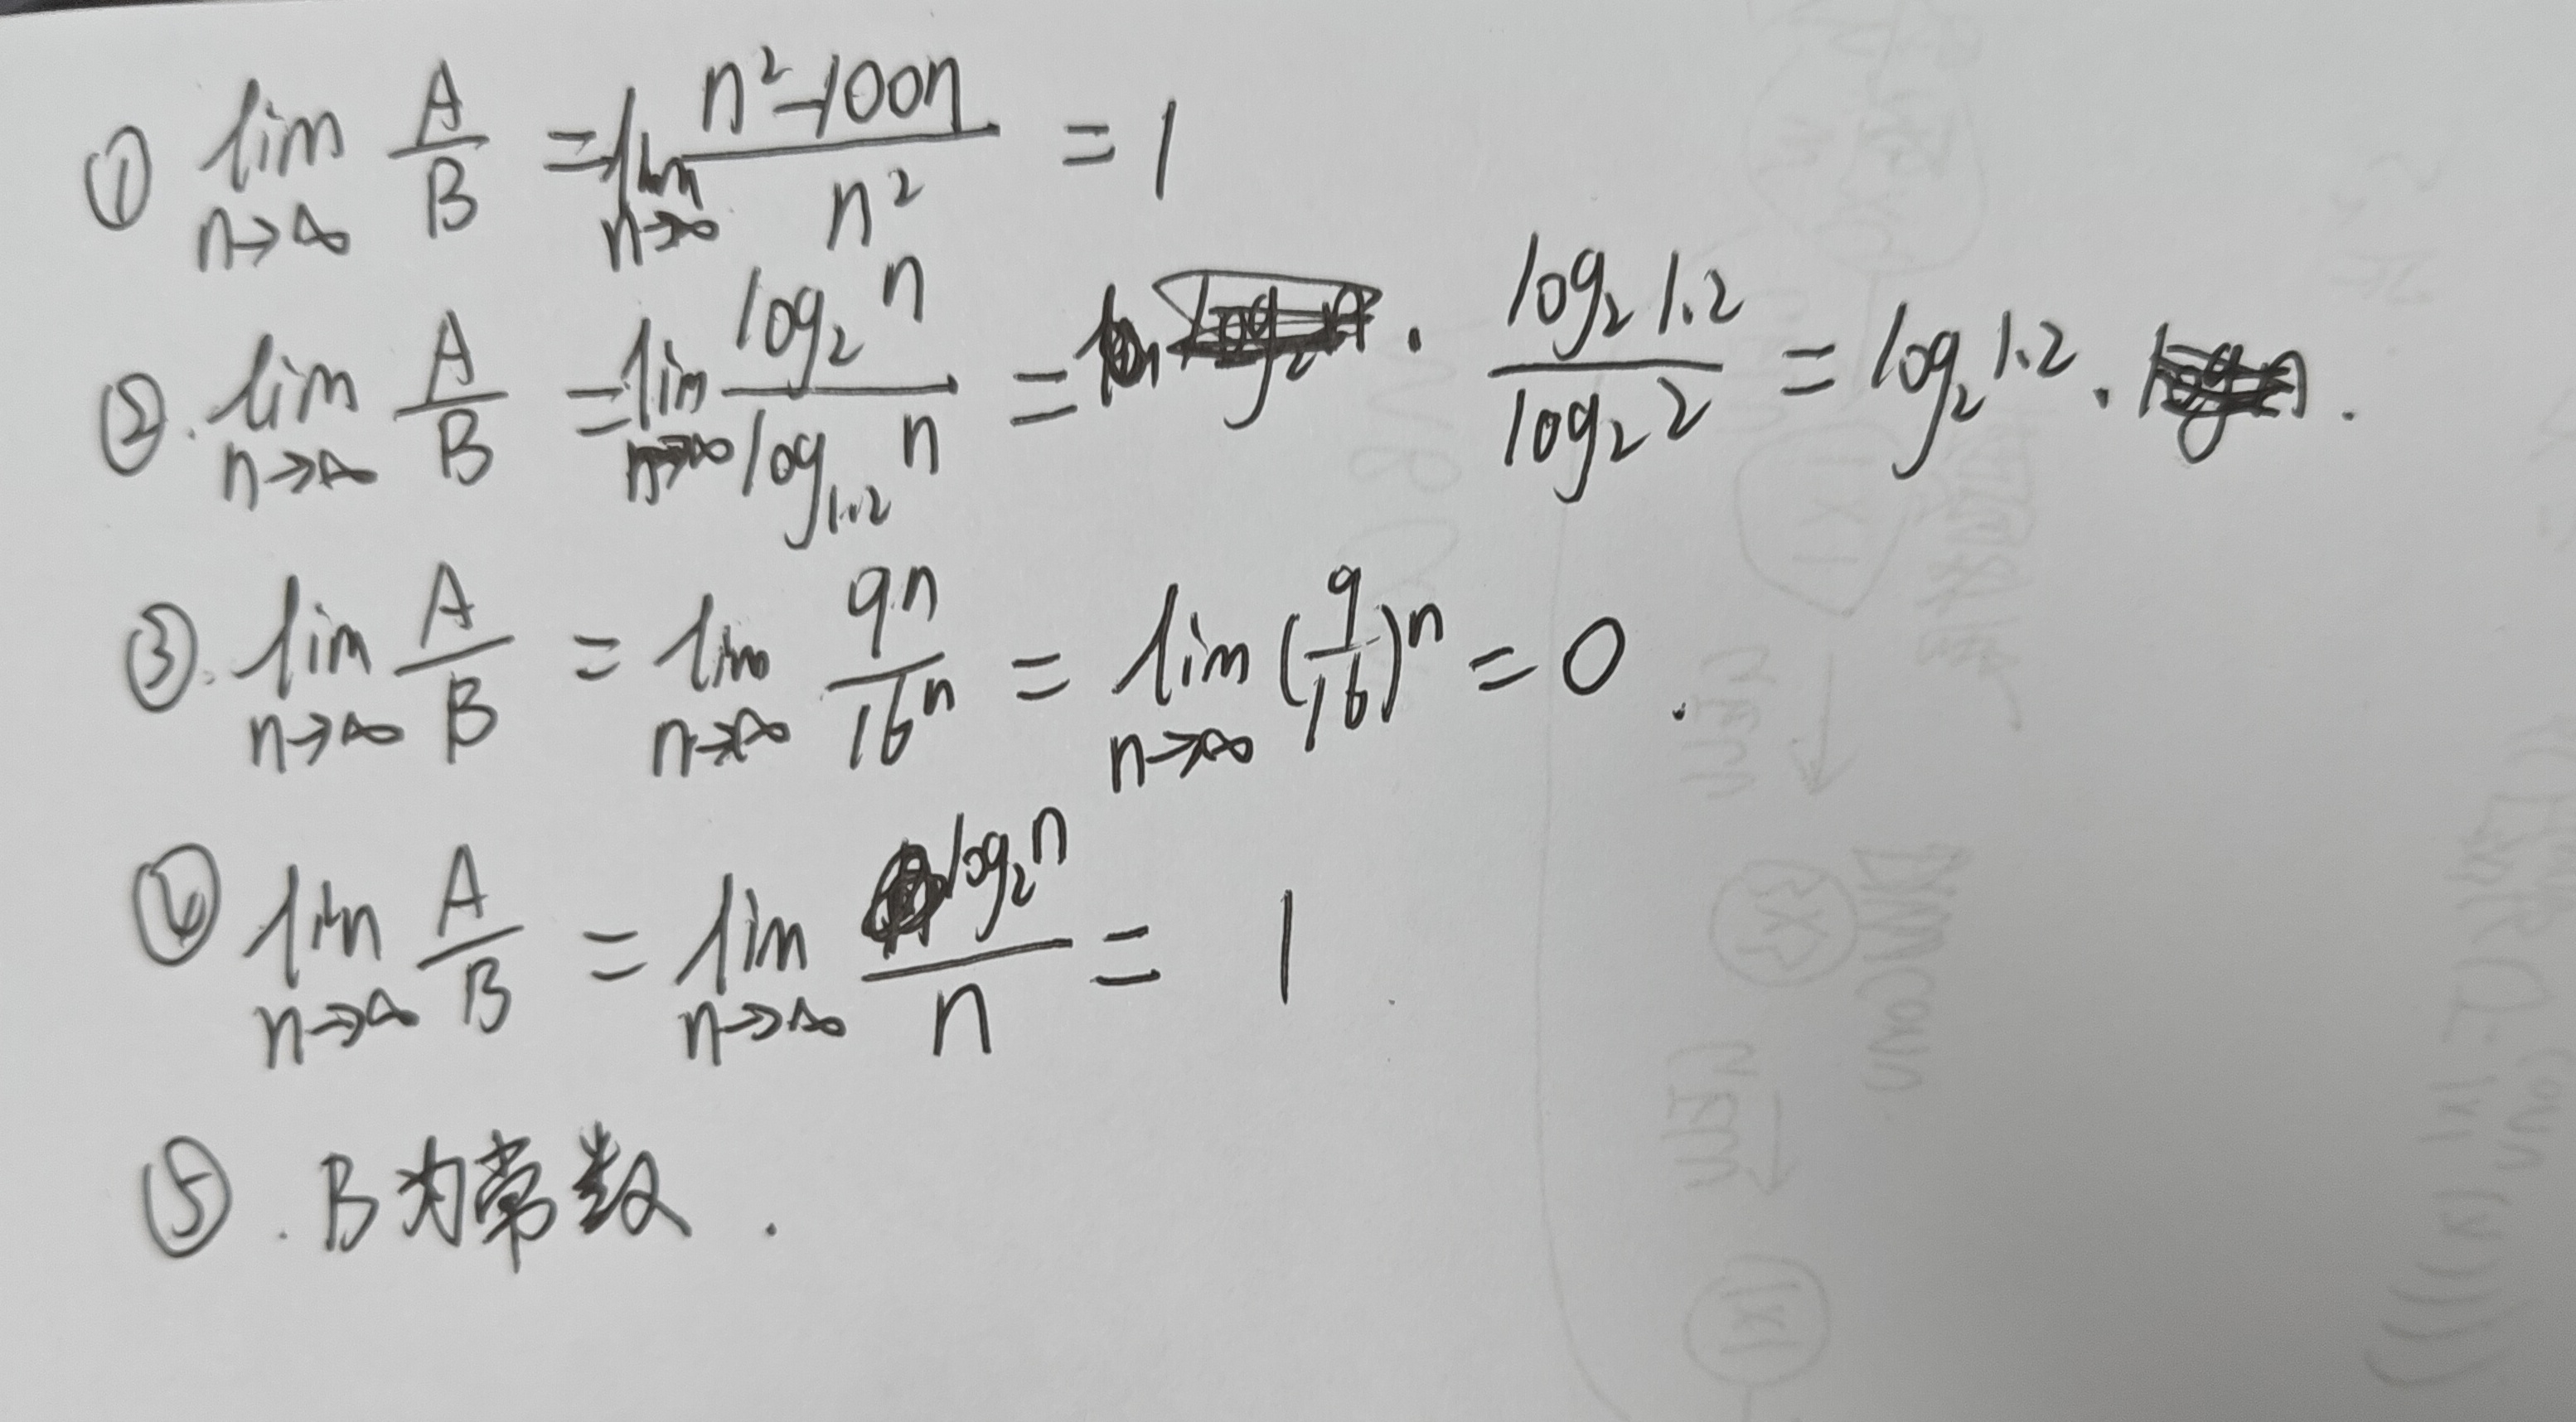 ① lim n→∞ A/B = lim n→∞ (n²-100n)/n² = 1
②. lim n→∞ A/B = lim n→∞ log₂n/log₁.₂n = · log₂1.2/log₂2 = log₂1.2 · .
③. lim n→∞ A/B = lim n→∞ 9ⁿ/16ⁿ = lim n→∞ (9/16)ⁿ = 0 .
④ lim n→∞ A/B = lim n→∞ log₂n/n = 1
⑤. B为常数.